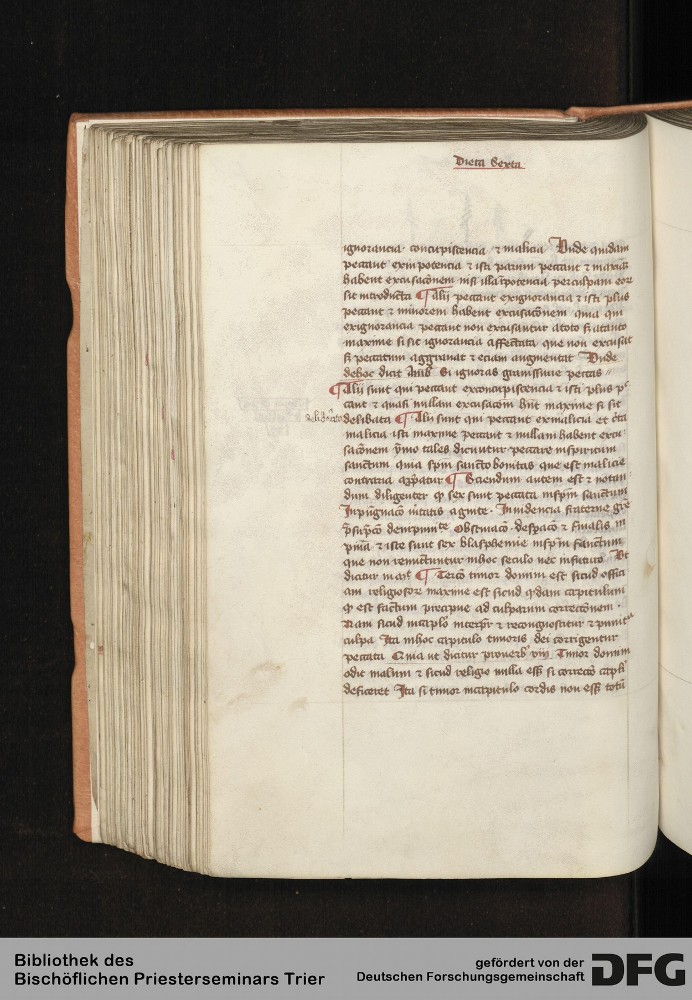 Dieta Sexta
ignorancia · concupiscencia ⁊ malicia Vnde quidam
peccant ex inpotencia ⁊ isti parum peccant ⁊ maximam
habent excusacōnem nisi illa īpotencia per culpam eorum
sit introducta ¶ Alij peccant ex ignorancia ⁊ isti plus
peccant ⁊ minorem habent excusacōnem quia qui
ex ignorancia peccant non excusantur a toto sꝫ a tanto
maxime si sit ignorancia affectata que non excusat
sꝫ peccatum aggrauat ⁊ eciam augmentat Vnde
de hoc dicit Amb Si ignoras grauissime peccas
¶ Alij sunt qui peccant ex concupiscencia ⁊ isti plus pec
cant ⁊ quasi nullam excusacōm hn̄t maxime si sit
delibata ¶ Alij sunt qui peccant ex malicia et cᵉta
malicia isti maxime peccant ⁊ nullam habent excu
sacōnem ymo tales dicuntur peccare in spiritum
sanctum quia spm̄ sancto bonitas que est malicie
contraria app̄patur ¶ Sciendum autem est ⁊ notan
dum diligenter ꝙ sex sunt peccata in spm̄ sanctum
Inpugnacō ūitatis agnite · Inuidencia fraterne grē
p̄supcō · Obstinacō · despacō ⁊ finalis in
pn̄ia ⁊ iste sunt sex blasphemie in spm̄ sanctum
que non remittuntur in hoc seculo nec in futuro Vt
dicitur in ¶ Tercō timor domini est sicud offici
am religiosoꝝ maxime est sicud qͦdam capitulum
ꝙ est factum precipue ad culparum correctōnem ·
Nam sicud in caplo ⁊ recongnoscitur ⁊ punitur
culpa Ita in hoc capitulo timoris dei corrigentur
peccata Quia ut dicitur prouerb viij Timor domini
odit malum ⁊ sicud religio nulla ess̄ si correctō capli
deficeret Ita si timor in capitulo cordis non ess̄ totū
Bibliothek des
Bischöflichen Priesterseminars Trier
gefördert von der
Deutschen Forschungsgemeinschaft
DFG